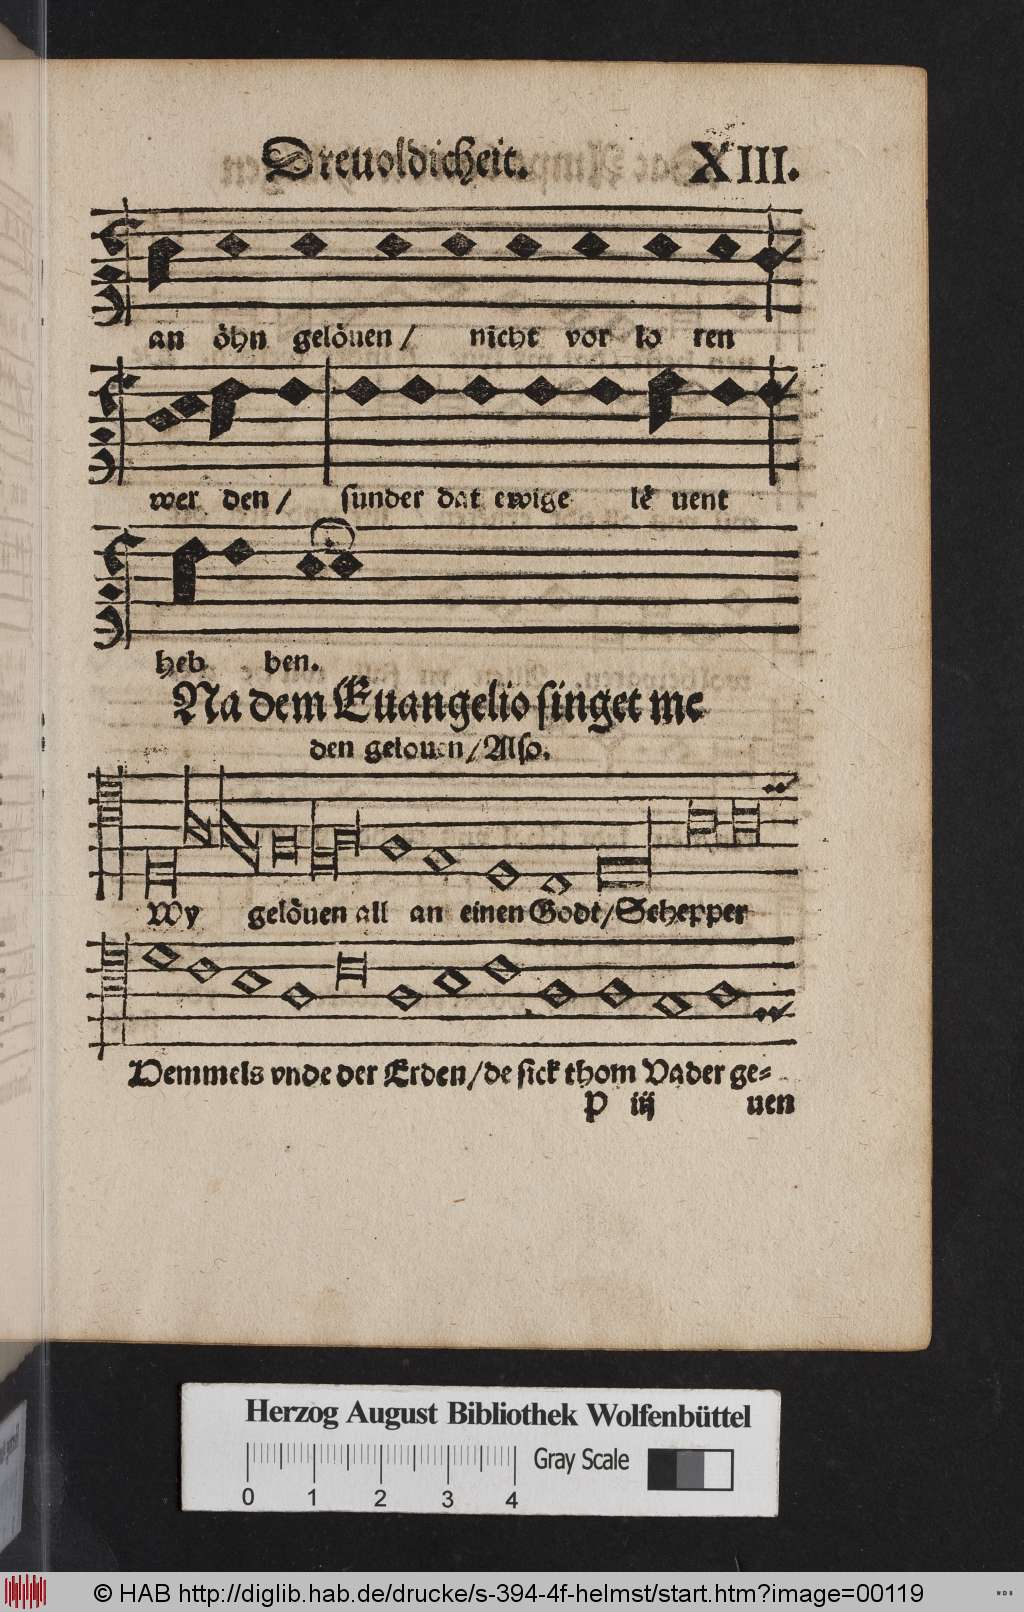 Dreuoldicheit. XIII.
an öhn gelöuen / nicht vor lo ren
wer den / sunder dat ewige lē uent
heb ben.
Na dem Euangelio singet me
den gelouen / Also.
Wy gelöuen all an einen Godt / Schepper
Hemmels vnde der Erden / de sick thom Vader ge=
P iij uen
Herzog August Bibliothek Wolfenbüttel
Gray Scale
0 1 2 3 4
© HAB http://diglib.hab.de/drucke/s-394-4f-helmst/start.htm?image=00119